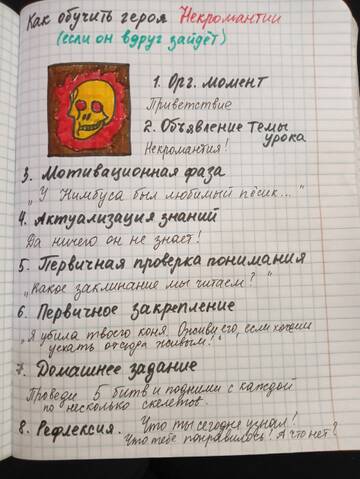 Как обучить героя Некромантии
(если он вдруг зайдёт)
1. Орг. момент
Приветствие
2. Объявление темы
урока
Некромантия!
3. Мотивационная фаза
„У Нимбуса был любимый пёсик..."
4. Актуализация знаний
Да ничего он не знает!
5. Первичная проверка понимания
„Какое заклинание мы читаем?"
6. Первичное закрепление
„Я убила твоего коня. Оживи его, если хочешь
ускать отсюда живым!"
7. Домашнее задание
Проведи 5 битв и подними с каждой
по несколько скелетов.
8. Рефлексия. Что ты сегодня узнал!
Что тебе понравилось! А что нет?